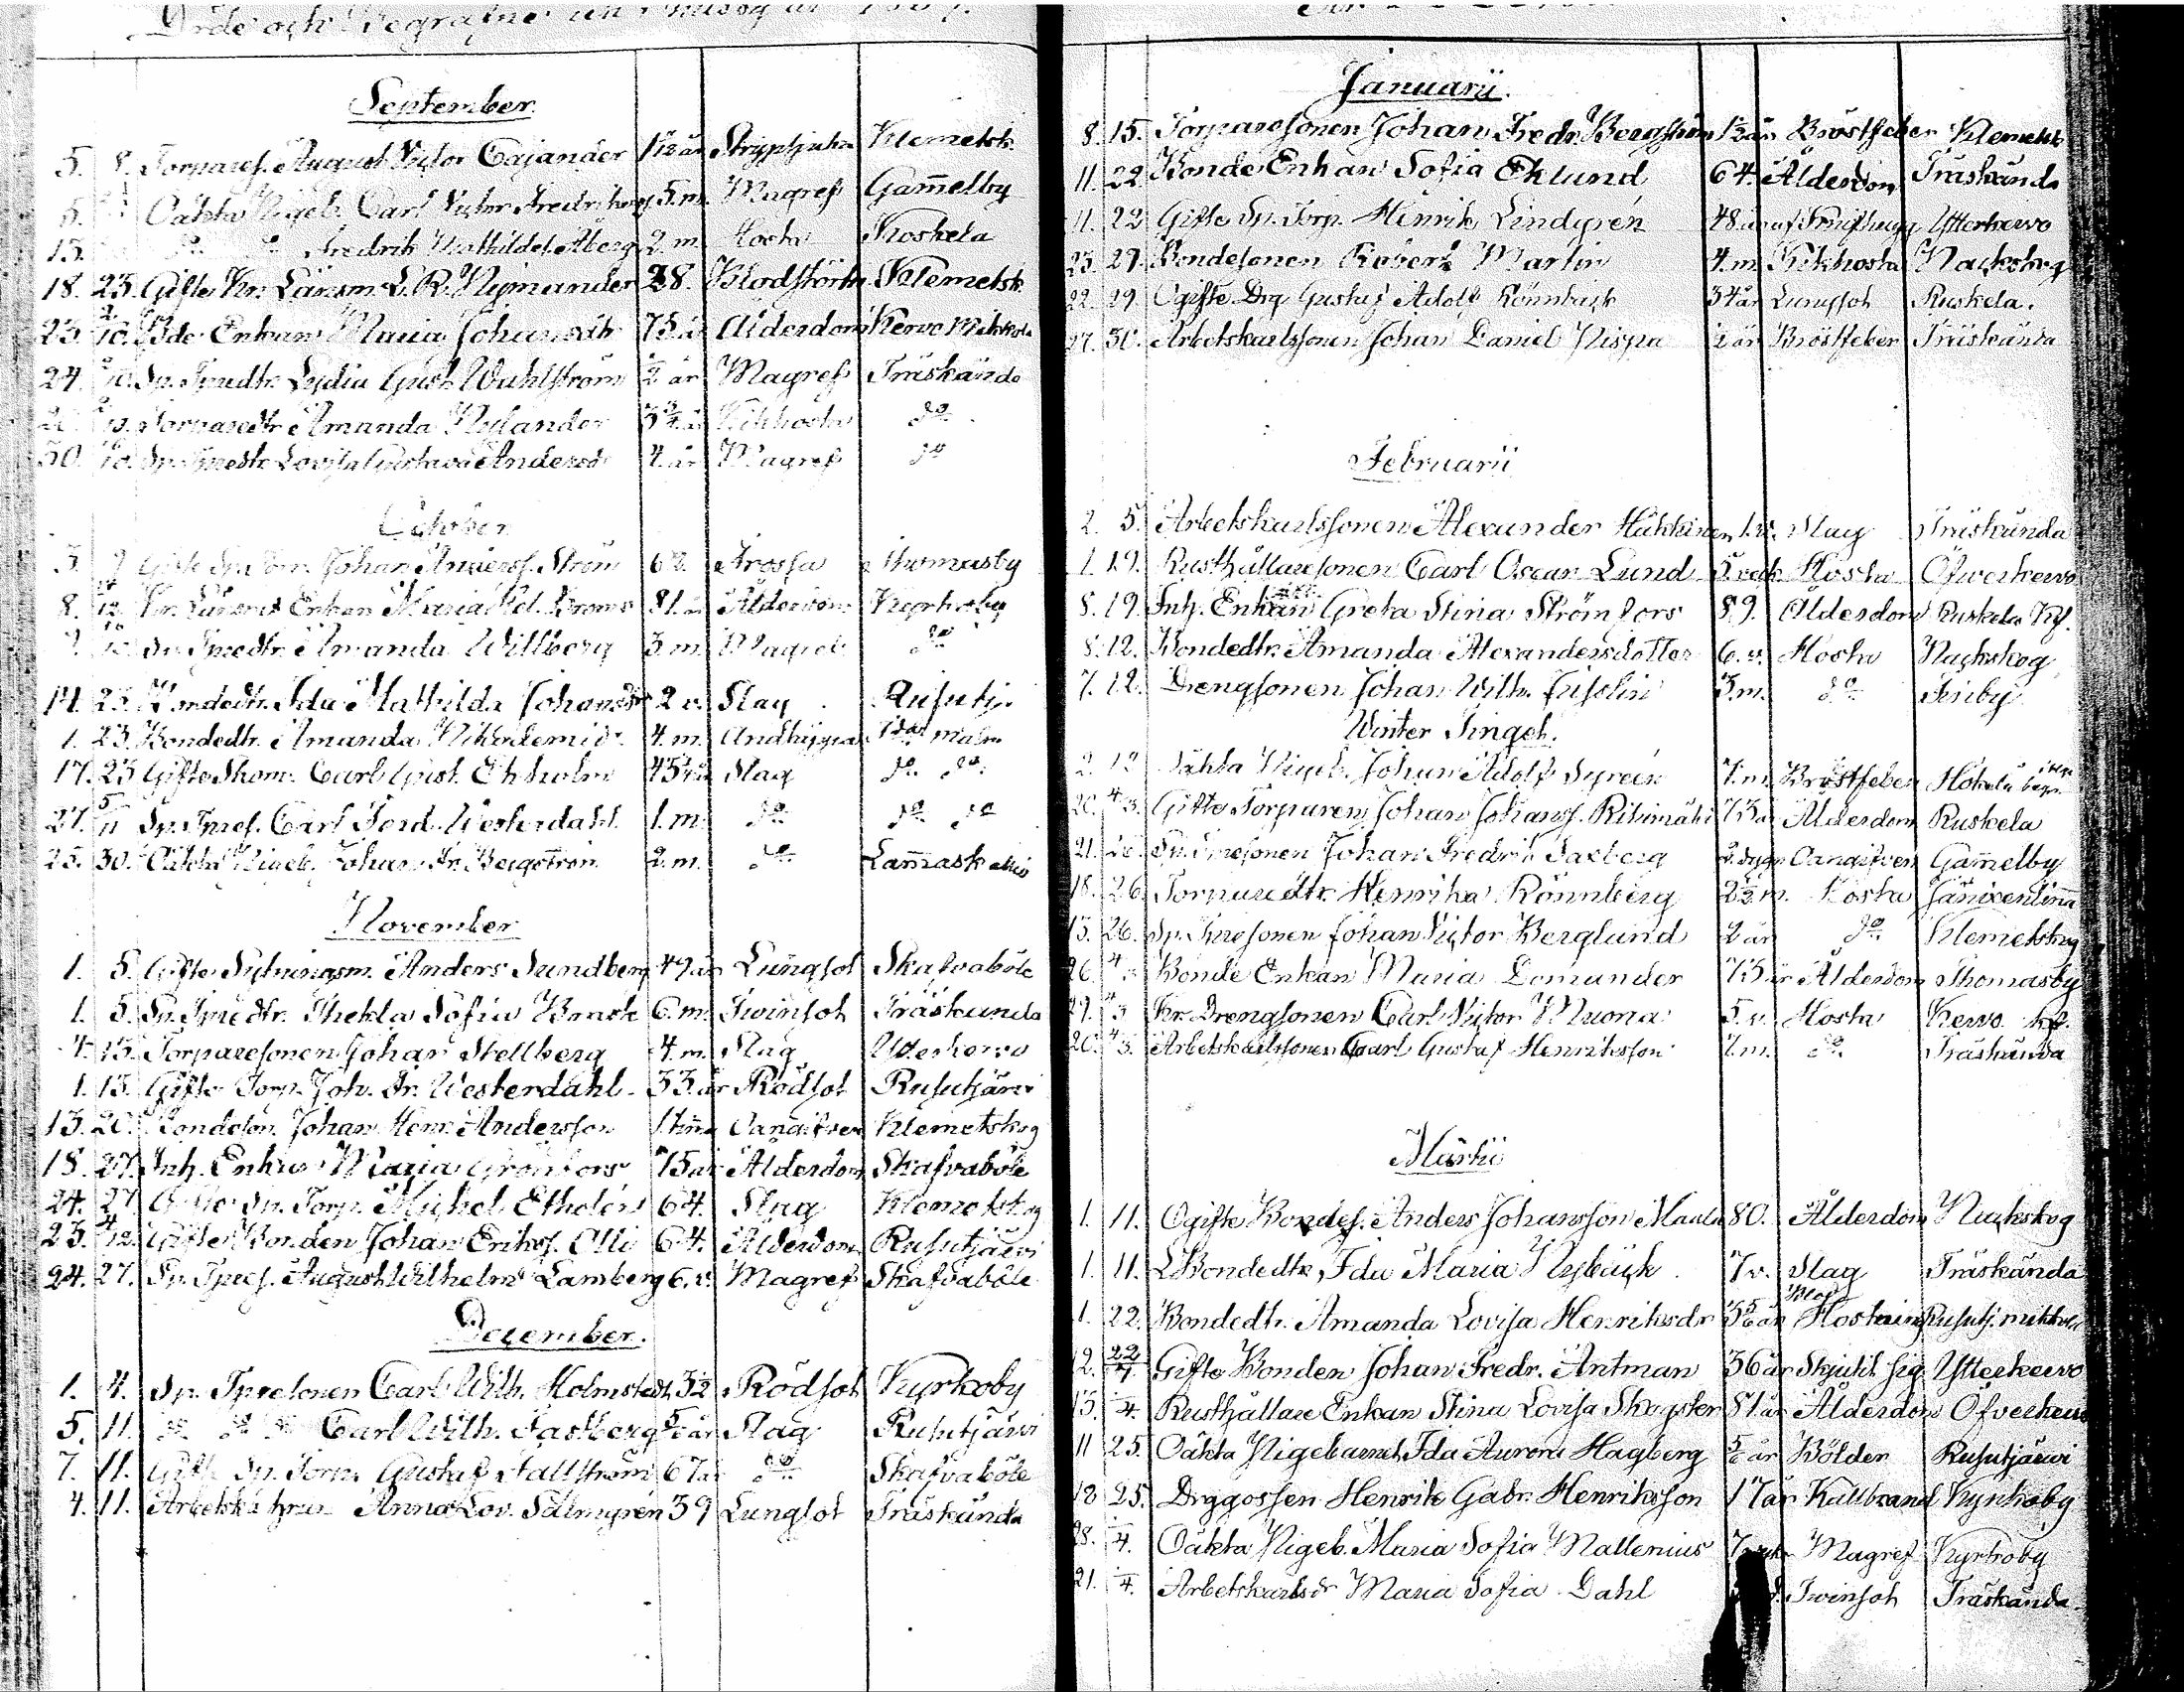 Döde och Begrafne
September.
5. 8. Torparef. August Victor Cajander Strypsjuka Klemetsk.
Oäkta Pigeb. Carl Victor Fredriksberg 5. m. Magref Gam̄elby
13. do do Fredrik Mathildef. Åberg 2. m. Hosta Koskela
18. 23. Gifte Kr. Länsm. L. R. Nymander 28. Blodstörtn. Klemetsk.
23. 2/10. Bde Enkan Maria Johansdtr 75. år Ålderdom Kervo Mikkola
24. Sp. Tpredtr. Lydia Gust. Wahlström ½ år Magref Träskända
Torparedtr. Amanda Nylander Kikhosta do
30. Sp. Tpredtr. Lovisa Gustava Andersdr 4. år Magref do
October
3. 9 Gifte Sp. Torp. Johan Anderss. Ström 62. Frossa Thomasby
8. Kr. Länsm. Enkan Maria Hel. Broms 81. år Ålderdom Kyrkoby
Sp. Tpredtr. Amanda Willberg 3. m. Magref do
14. 23. Bondedtr. Ida Mathilda Johansdr 2 v. Slag Rusutj.
1. 23. Bondedtr. Amanda Nikodemidr. 4. m. Andtäppa do malm
17. 23 Gifte Skom. Carl Gust. Ekholm 45 år Slag do do
27. 5/11 Sp. Tpref. Carl Ferd. Westerdahl. 1. m. do do do
25. 30. Oäkta Pigeb. Johan Fr. Bergström 2. m. do Lam̄askallio
November
1. 5. Gifte Sytningsm. Anders Sundberg 49 år Lungsot Skafvaböle
1. 5. Sp. Tpredtr. Thekla Sofia Brask 6. m. Twinsot Träskända
4. 13. Torparesonen Johan Stellberg 4. m. Slag Ytterkervo
1. 13. Gifte Torp. Joh. Fr. Westerdahl 33. år Rödsot Rusutjärvi
13. 20. Bondeson Johan Henr. Andersson Oangifven Klemetskog
18. 27. Inh. Enkan Maria Grönfors 75 år Ålderdom Skafvaböle
24. 27 Gifte Sp. Torp. Michel Ekholm 64. Slag Klemetskog
23. 4/12. Gifte Bonden Johan Eriks. Olli 64. Ålderdom Rusutjärvi
24. 27. Sp. Tpref. August Wilhelm Lamberg 6. v. Magref Skafvaböle
December.
1. 4. Sp. Tpresonen Carl Wilh. Holmstedt 3½ Rödsot Kyrkoby
5. 11. do do do Carl Wilh. Fastberg Slag Rusutjärvi
7. 11. Gifte Sp. Torp. Gustaf Fallström 67 år do Skafvaböle
4. 11. Arbetsk. hustr. Anna Lov. Salmgren 39 Lungsot Träskända
Januarii.
8. 15. Torparesonen Johan Fredr. Bergström 1½ år Bröstfeber Klemetsk
11. 22. Bonde Enkan Sofia Eklund 64. Ålderdom Träskända
11. 22 Gifte Sp. Torp. Henrik Lindgrén 48 år Ytterkervo
23. 29. Bondesonen Robert Martin 4. m. Kikhosta Nackskog
22. 29. Ogifte Drg. Gustaf Adolf Rönnbäck 34 år Lungsot Ruskela.
27. 30. Arbetskarlssonen Johan Daniel Nispa ½ år Bröstfeber Träskända
Februarii
2. 5. Arbetskarlssonen Alexander Häkkinen 1. v. Slag Träskända
1. 19. Rusthållaresonen Carl Oscar Lund 5. veck Hosta Öfverkervo
8. 19. Inh. Enkan Greta Stina Strömfors 89. Ålderdom Ruskela
8. 12. Bondedtr. Amanda Alexandersdotter 6. v. Hosta Nackskog
7. 12. Drengsonen Johan Wilh. Friselin 3. m. do
Winter Tinget.
2. 12 Oäkta Pigeb. Johan Adolf Syrein 7. m. Bröstfeber
20. 4/3. Gifte Torparen Johan Johans. Riihimäki 73 år Ålderdom Ruskela
21. 26. Sp. Tpresonen Johan Fredrik Saxberg Oangifven Gam̄elby
18. 26. Torparedtr. Henrika Rönnberg 2½ m. Hosta
13. 26. Sp. Tpresonen Johan Victor Berglund 2 år do Klemetskog
26. 4/3 Bonde Enkan Maria Lomander 73 år Ålderdom Thomasby
29. 4/3 Kr. Drengsonen Carl Victor Muona 5. v. Hosta Kervo
26. 4/3. Arbetskarlssonen Carl Gustaf Henriksson 7. m. do Träskända
Martii
1. 11. Ogifte Bondes. Anders Johansson 80. Ålderdom Nackskog
1. 11. Bondedtr. Ida Maria Nybäck 7 v. Slag Träskända
1. 22. Bondedtr. Amanda Lovisa Henriksdr Rusutj. mikkola
12. 22/4 Gifte Bonden Johan Fredr. Antman 36 år Skjutit sig Ytterkervo
15. Rusthållare Enkan Stina Lovisa Skogster 81 år Ålderdom Öfverkervo
11 25. Oäkta Pigebarnet Ida Aurora Hagberg Bölder Rusutjärvi
18 25. Drggossen Henrik Gabr. Henriksson 17 år Kallbrand Kyrkoby
28. Oäkta Pigeb. Maria Sofia Mallenius Magref Kyrkoby
21. Arbetskarlsdr Maria Sofia Dahl Twinsot Träskända